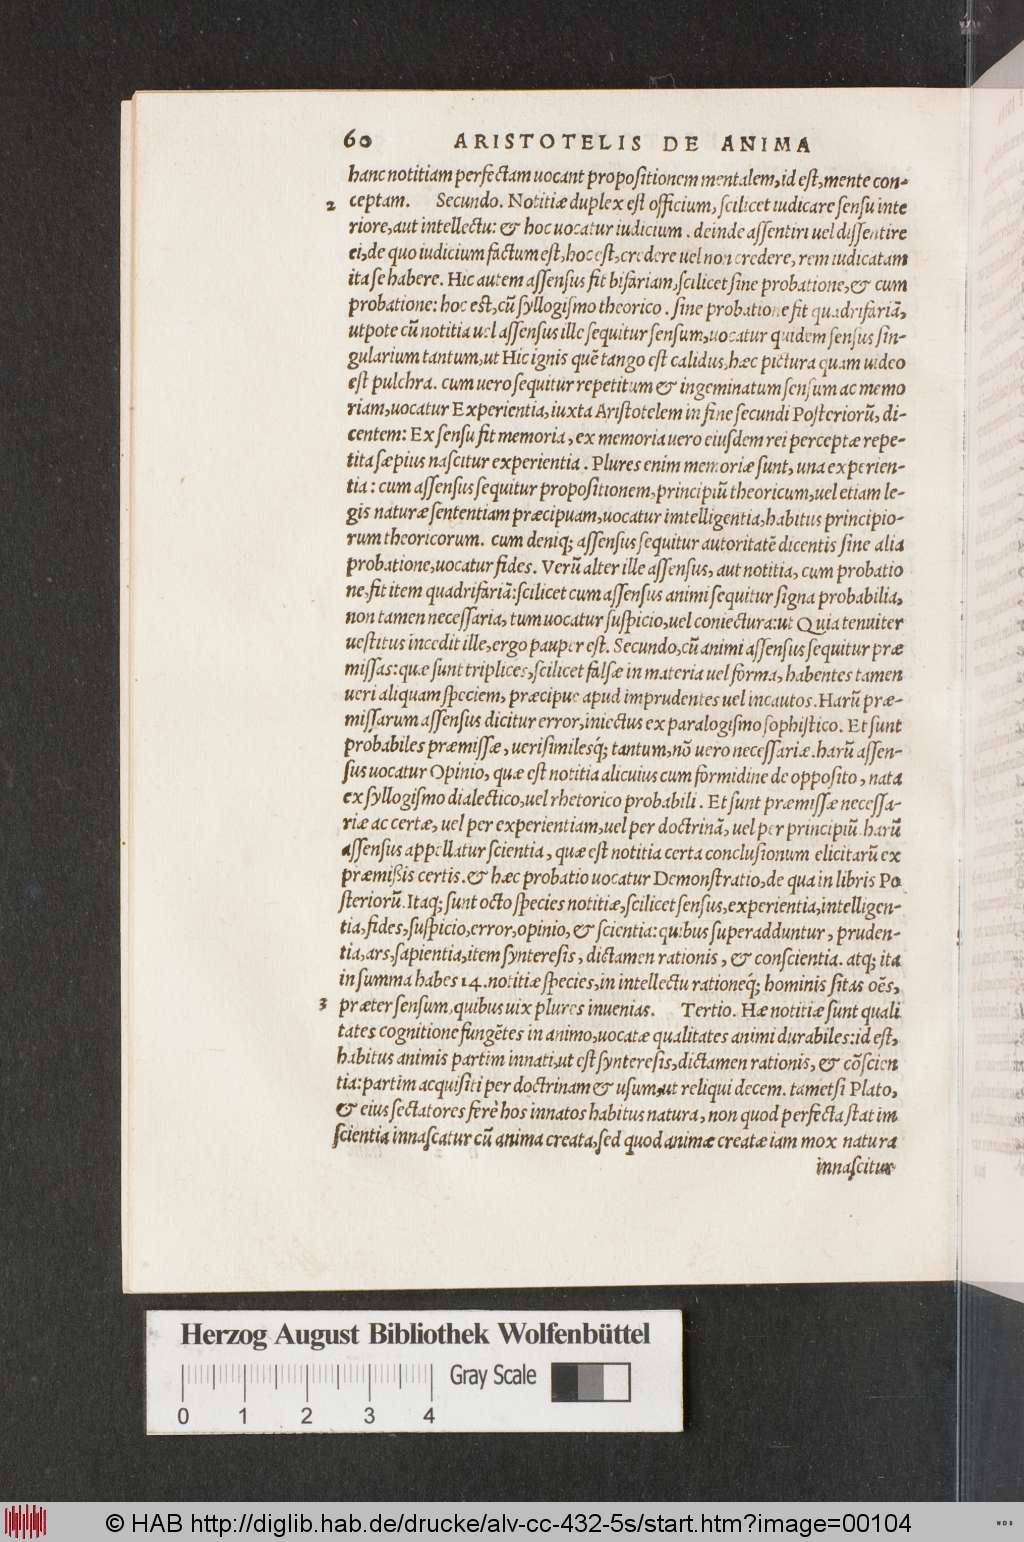 60 ARISTOTELIS DE ANIMA
hanc notitiam perfectam uocant propositionem mentalem, id est, mente con-
2 ceptam. Secundo. Notitiæ duplex est officium, scilicet iudicare sensu inte
riore, aut intellectu: & hoc uocatur iudicium. deinde assentiri uel dissentire
ei, de quo iudicium factum est, hoc est, credere uel non credere, rem iudicatam
ita se habere. Hic autem assensus fit bifariam, scilicet sine probatione, & cum
probatione: hoc est, cū syllogismo theorico. sine probatione fit quadrifariā,
utpote cū notitia uel assensus ille sequitur sensum, uocatur quidem sensus sin-
gularium tantum, ut Hic ignis quē tango est calidus, hæc pictura quam uideo
est pulchra. cum uero sequitur repetitum & ingeminatum sensum ac memo
riam, uocatur Experientia, iuxta Aristotelem in fine secundi Posteriorū, di-
centem: Ex sensu fit memoria, ex memoria uero eiusdem rei perceptæ repe-
tita sæpius nascitur experientia. Plures enim memoriæ sunt, una experien-
tia: cum assensus sequitur propositionem, principiū theoricum, uel etiam le-
gis naturæ sententiam præcipuam, uocatur imtelligentia, habitus principio-
rum theoricorum. cum deniq; assensus sequitur autoritatē dicentis sine alia
probatione, uocatur fides. Verū alter ille assensus, aut notitia, cum probatio
ne, fit item quadrifariā: scilicet cum assensus animi sequitur signa probabilia,
non tamen necessaria, tum uocatur suspicio, uel coniectura: ut Quia tenuiter
uestitus incedit ille, ergo pauper est. Secundo, cū animi assensus sequitur præ
missas: quæ sunt triplices, scilicet falsæ in materia uel forma, habentes tamen
ueri aliquam speciem, præcipue apud imprudentes uel incautos. Harū præ-
missarum assensus dicitur error, iniectus ex paralogismo sophistico. Et sunt
probabiles præmissæ, uerisimilesq́; tantum, nō uero necessariæ. harū assen-
sus uocatur Opinio, quæ est notitia alicuius cum formidine de opposito, nata
ex syllogismo dialectico, uel rhetorico probabili. Et sunt præmissæ necessa-
riæ ac certæ, uel per experientiam, uel per doctrinā, uel per principiū. harū
assensus appellatur scientia, quæ est notitia certa conclusionum elicitarū ex
præmißis certis. & hæc probatio uocatur Demonstratio, de qua in libris Po
steriorū. Itaq; sunt octo species notitiæ, scilicet sensus, experientia, intelligen-
tia, fides, suspicio, error, opinio, & scientia: quibus superadduntur, pruden-
tia, ars, sapientia, item synteresis, dictamen rationis, & conscientia. atq; ita
in summa habes 14. notitiæ species, in intellectu rationeq́; hominis sitas oēs,
3 præter sensum, quibus uix plures inuenias. Tertio. Hæ notitiæ sunt quali
tates cognitione fungētes in animo, uocatæ qualitates animi durabiles: id est,
habitus animis partim innati, ut est synteresis, dictamen rationis, & cōscien
tia: partim acquisiti per doctrinam & usum, ut reliqui decem. tametsi Plato,
& eius sectatores ferè hos innatos habitus natura, non quod perfecta statim
scientia innascatur cū anima creata, sed quod animæ creatæ iam mox natura
innascitur
Herzog August Bibliothek Wolfenbüttel
Gray Scale
0 1 2 3 4
© HAB http://diglib.hab.de/drucke/alv-cc-432-5s/start.htm?image=00104